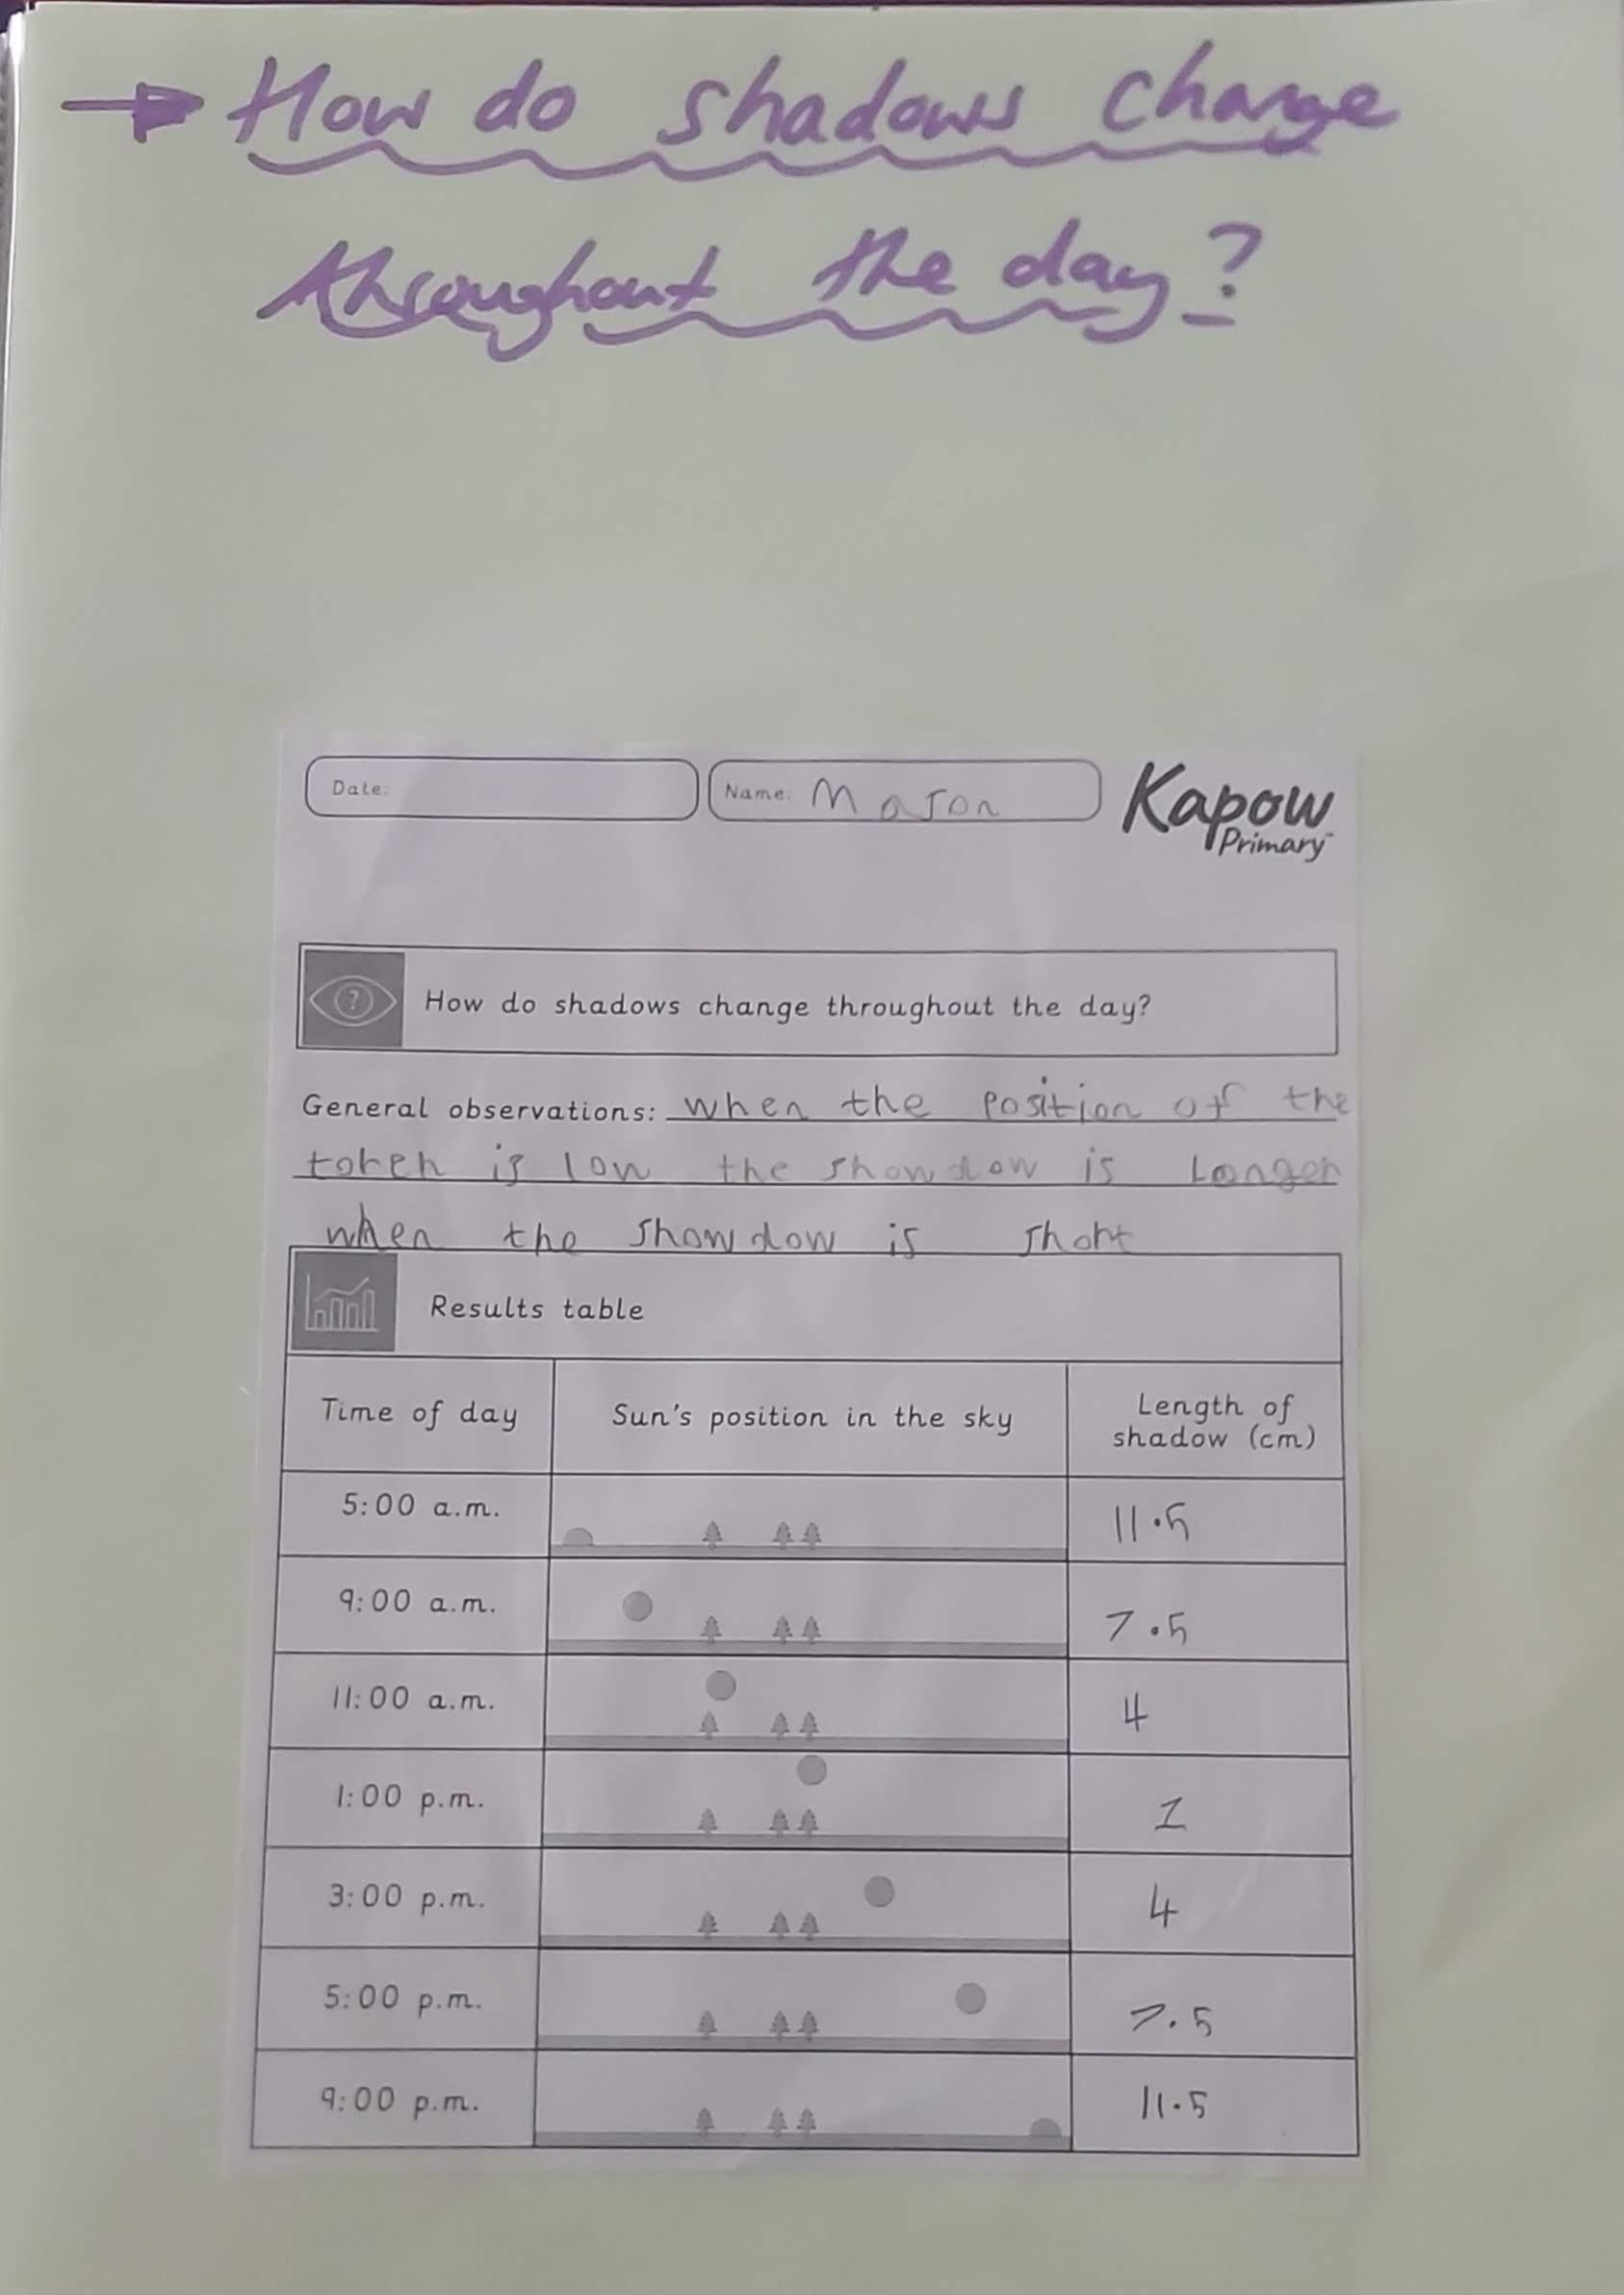 How do shadows change
throughout the day?
Date:
Name: Mason
Kapow
Primary
How do shadows change throughout the day?
General observations: when the position of the
torch is low the showdow is Longer
when the showdow is short
Results table
Time of day Sun's position in the sky Length of shadow (cm)
5:00 a.m. 11.5
9:00 a.m. 7.5
11:00 a.m. 4
1:00 p.m. 1
3:00 p.m. 4
5:00 p.m. 7.5
9:00 p.m. 11.5